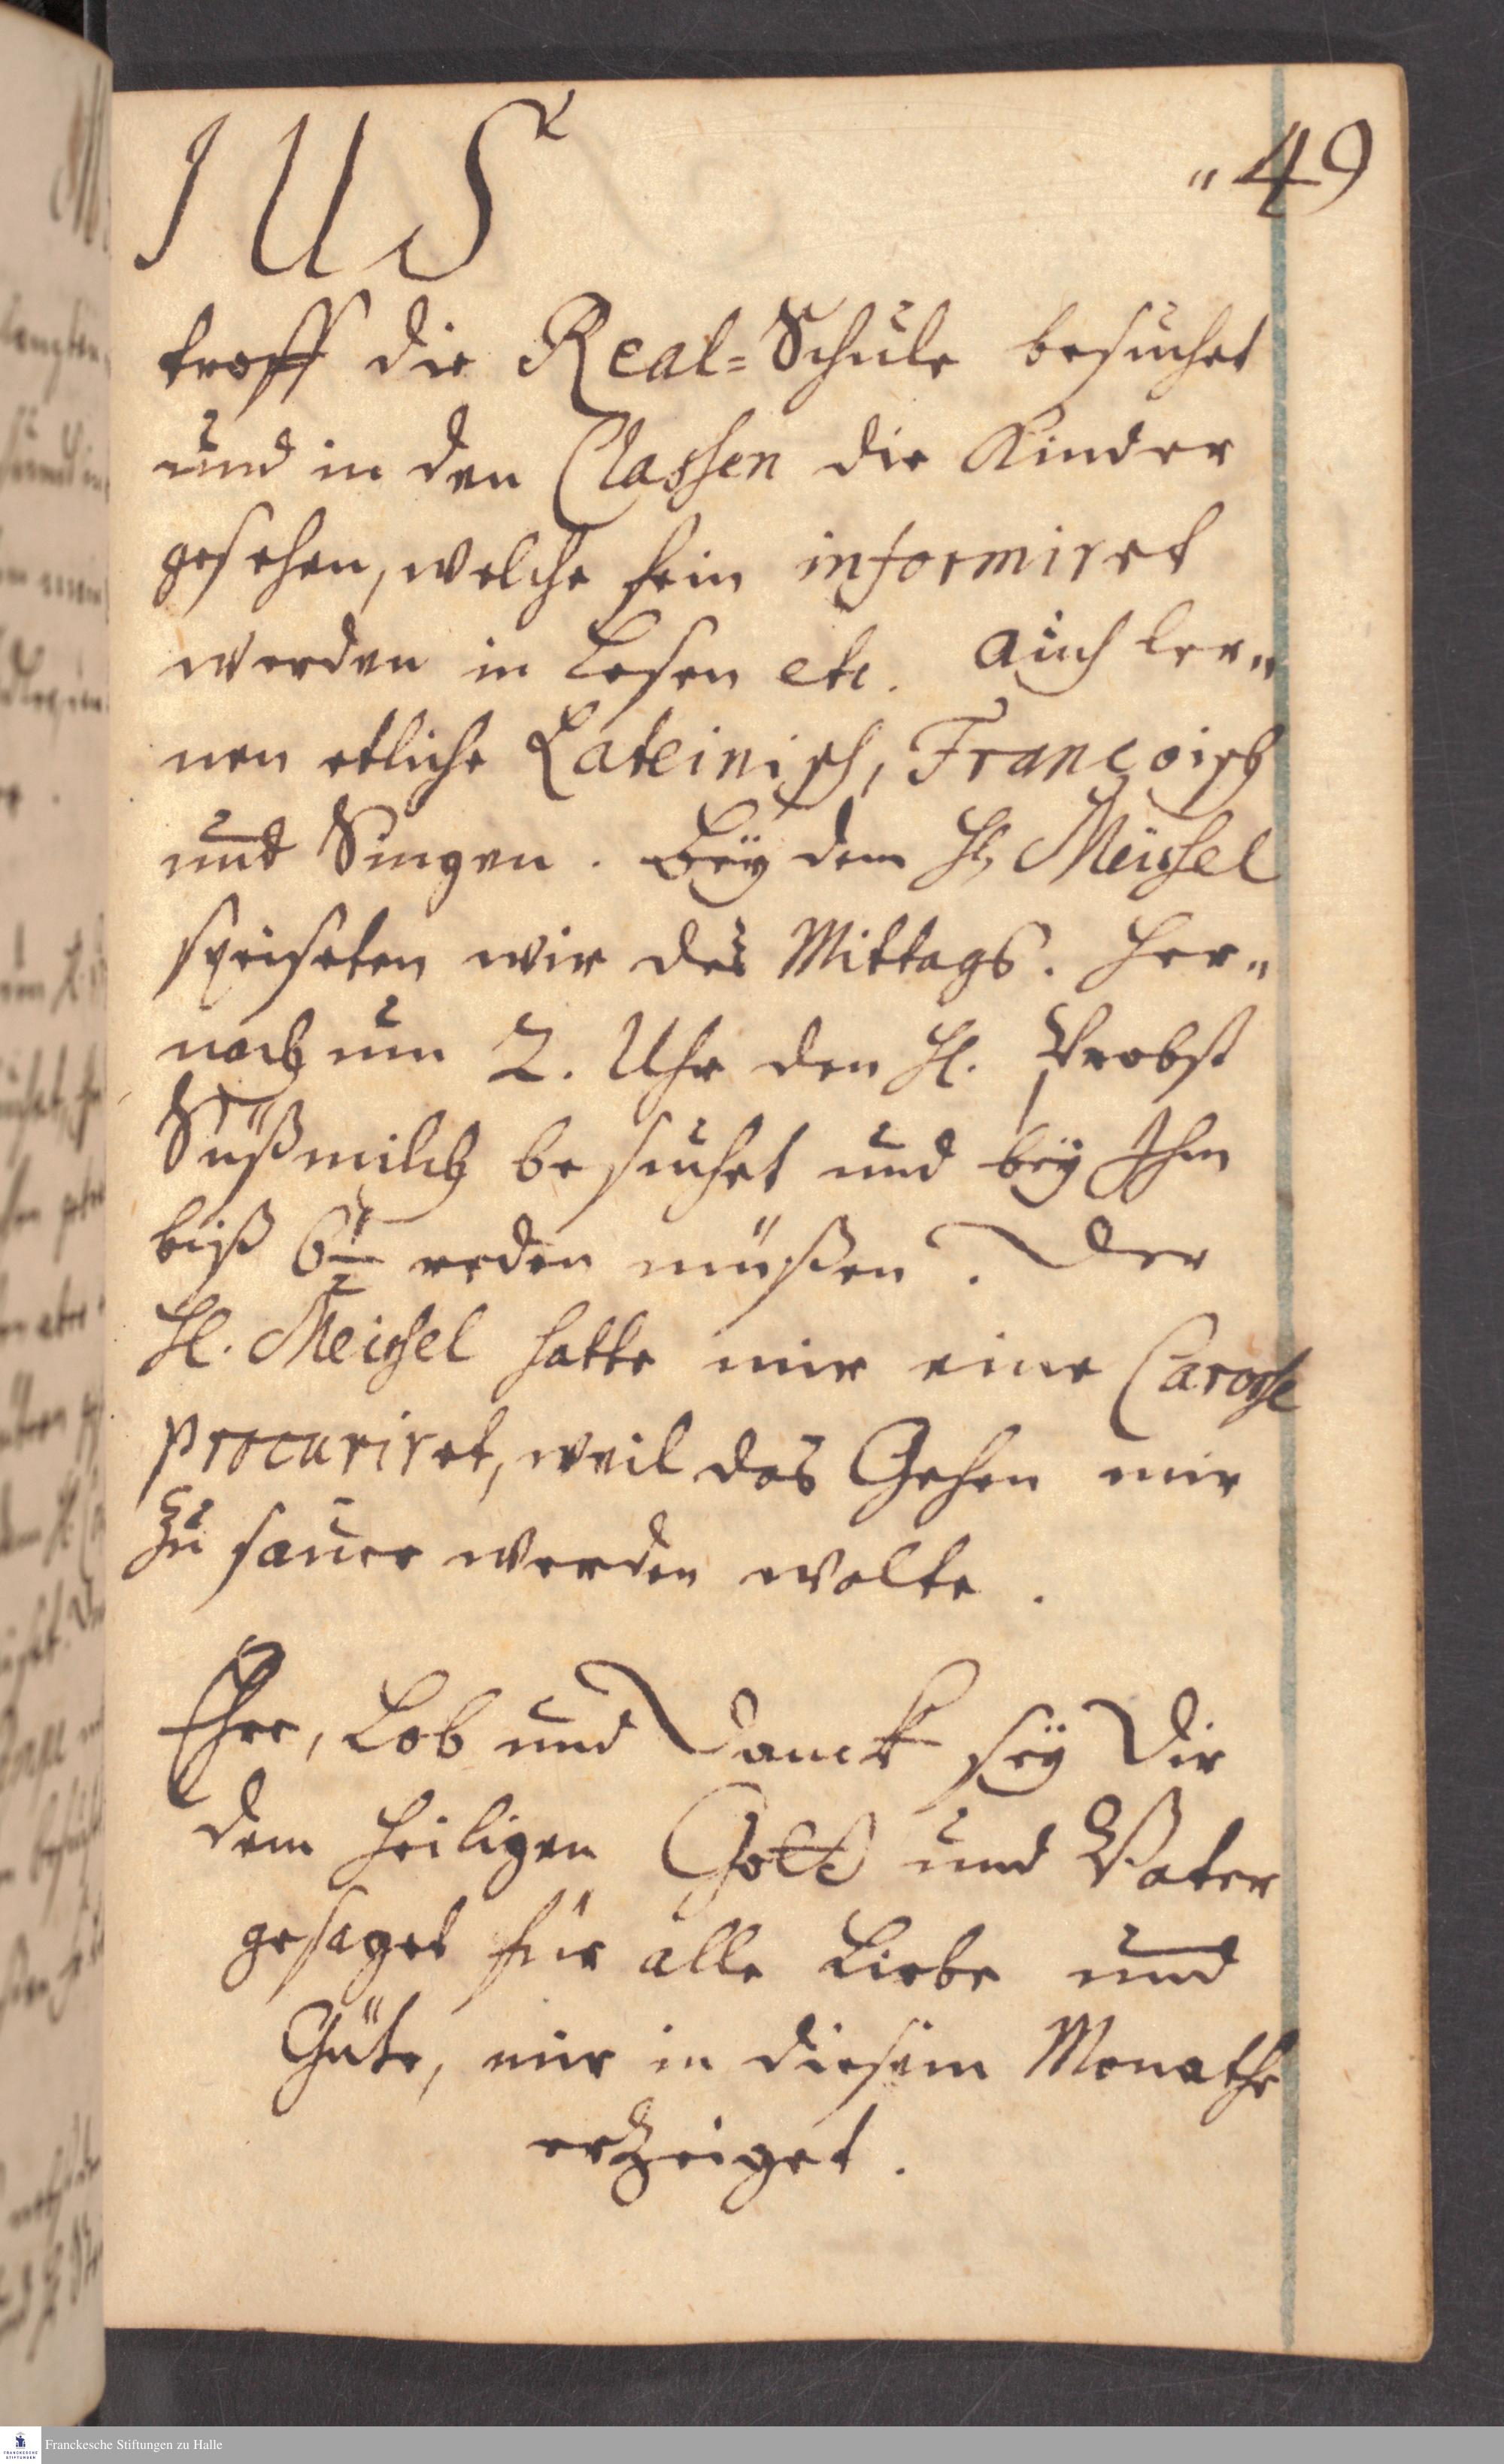 IUS
"49
troff die Real=Schule besuchet
und in den Classen die Kinder
gesehen, welche fein informiret
werden in Lesen etc. auch ler„
nen etliche Lateinisch, Françoisch
und Singen. Bey dem H. Meissel
speiseten wir des Mittags. Her„
nach um 2. Uhr den H. Probst
Süßmilch besuchet und bey Ihm
biß 6 1/2 reden müßen. Der
H. Meissel hatte mir eine Carosse
procuriret, weil das Gehen mir
zu sauer werden wolte.
Ehre, Lob und Danck sey Dir
dem heiligen Gott und Vater
gesaget für alle Liebe und
Güte, mir in diesem Monathe
erzeiget.
Franckesche Stiftungen zu Halle